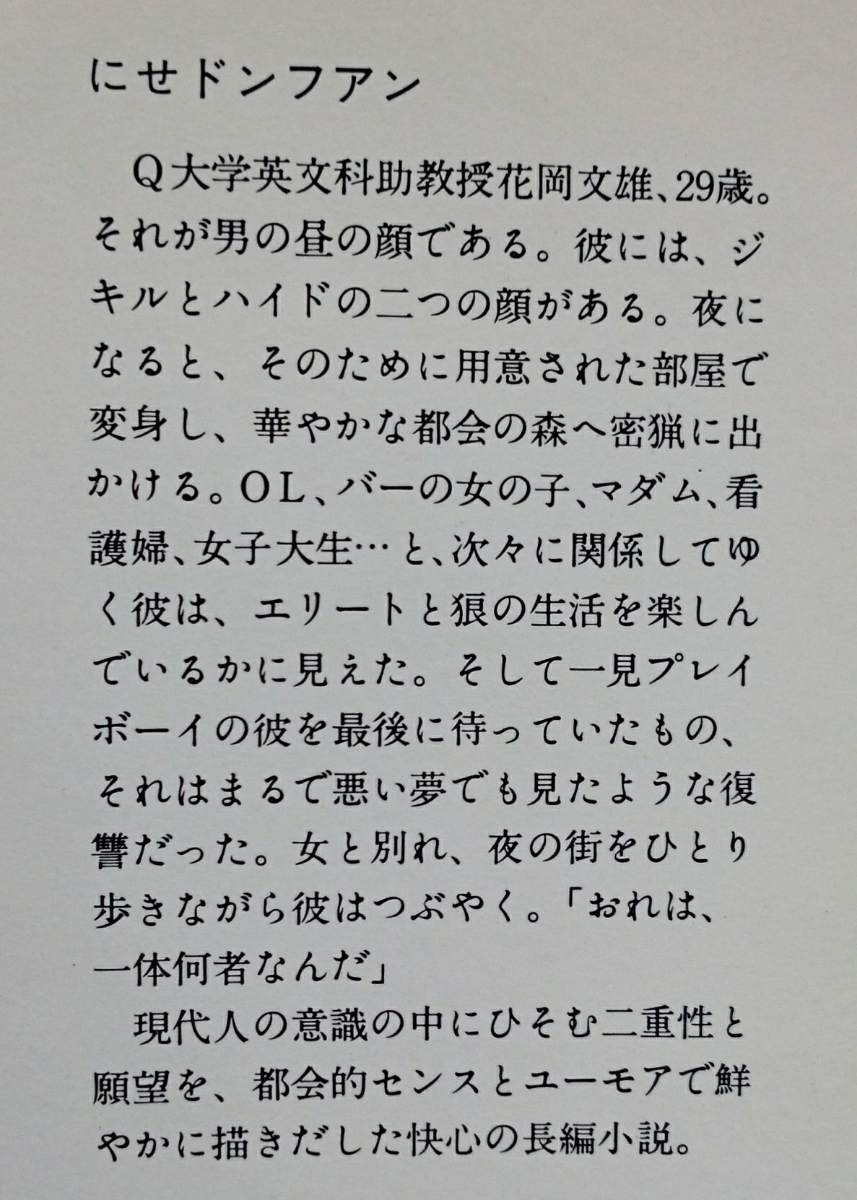 にせドンフアン
Q大学英文科助教授花岡文雄、29歳。
それが男の昼の顔である。彼には、ジ
キルとハイドの二つの顔がある。夜に
なると、そのために用意された部屋で
変身し、華やかな都会の森へ密猟に出
かける。OL、バーの女の子、マダム、看
護婦、女子大生…と、次々に関係してゆ
く彼は、エリートと狽の生活を楽しん
でいるかに見えた。そして一見プレイ
ボーイの彼を最後に待っていたもの、
それはまるで悪い夢でも見たような復
讐だった。女と別れ、夜の街をひとり
歩きながら彼はつぶやく。「おれは、
一体何者なんだ」
現代人の意識の中にひそむ二重性と
願望を、都会的センスとユーモアで鮮
やかに描きだした快心の長編小説。